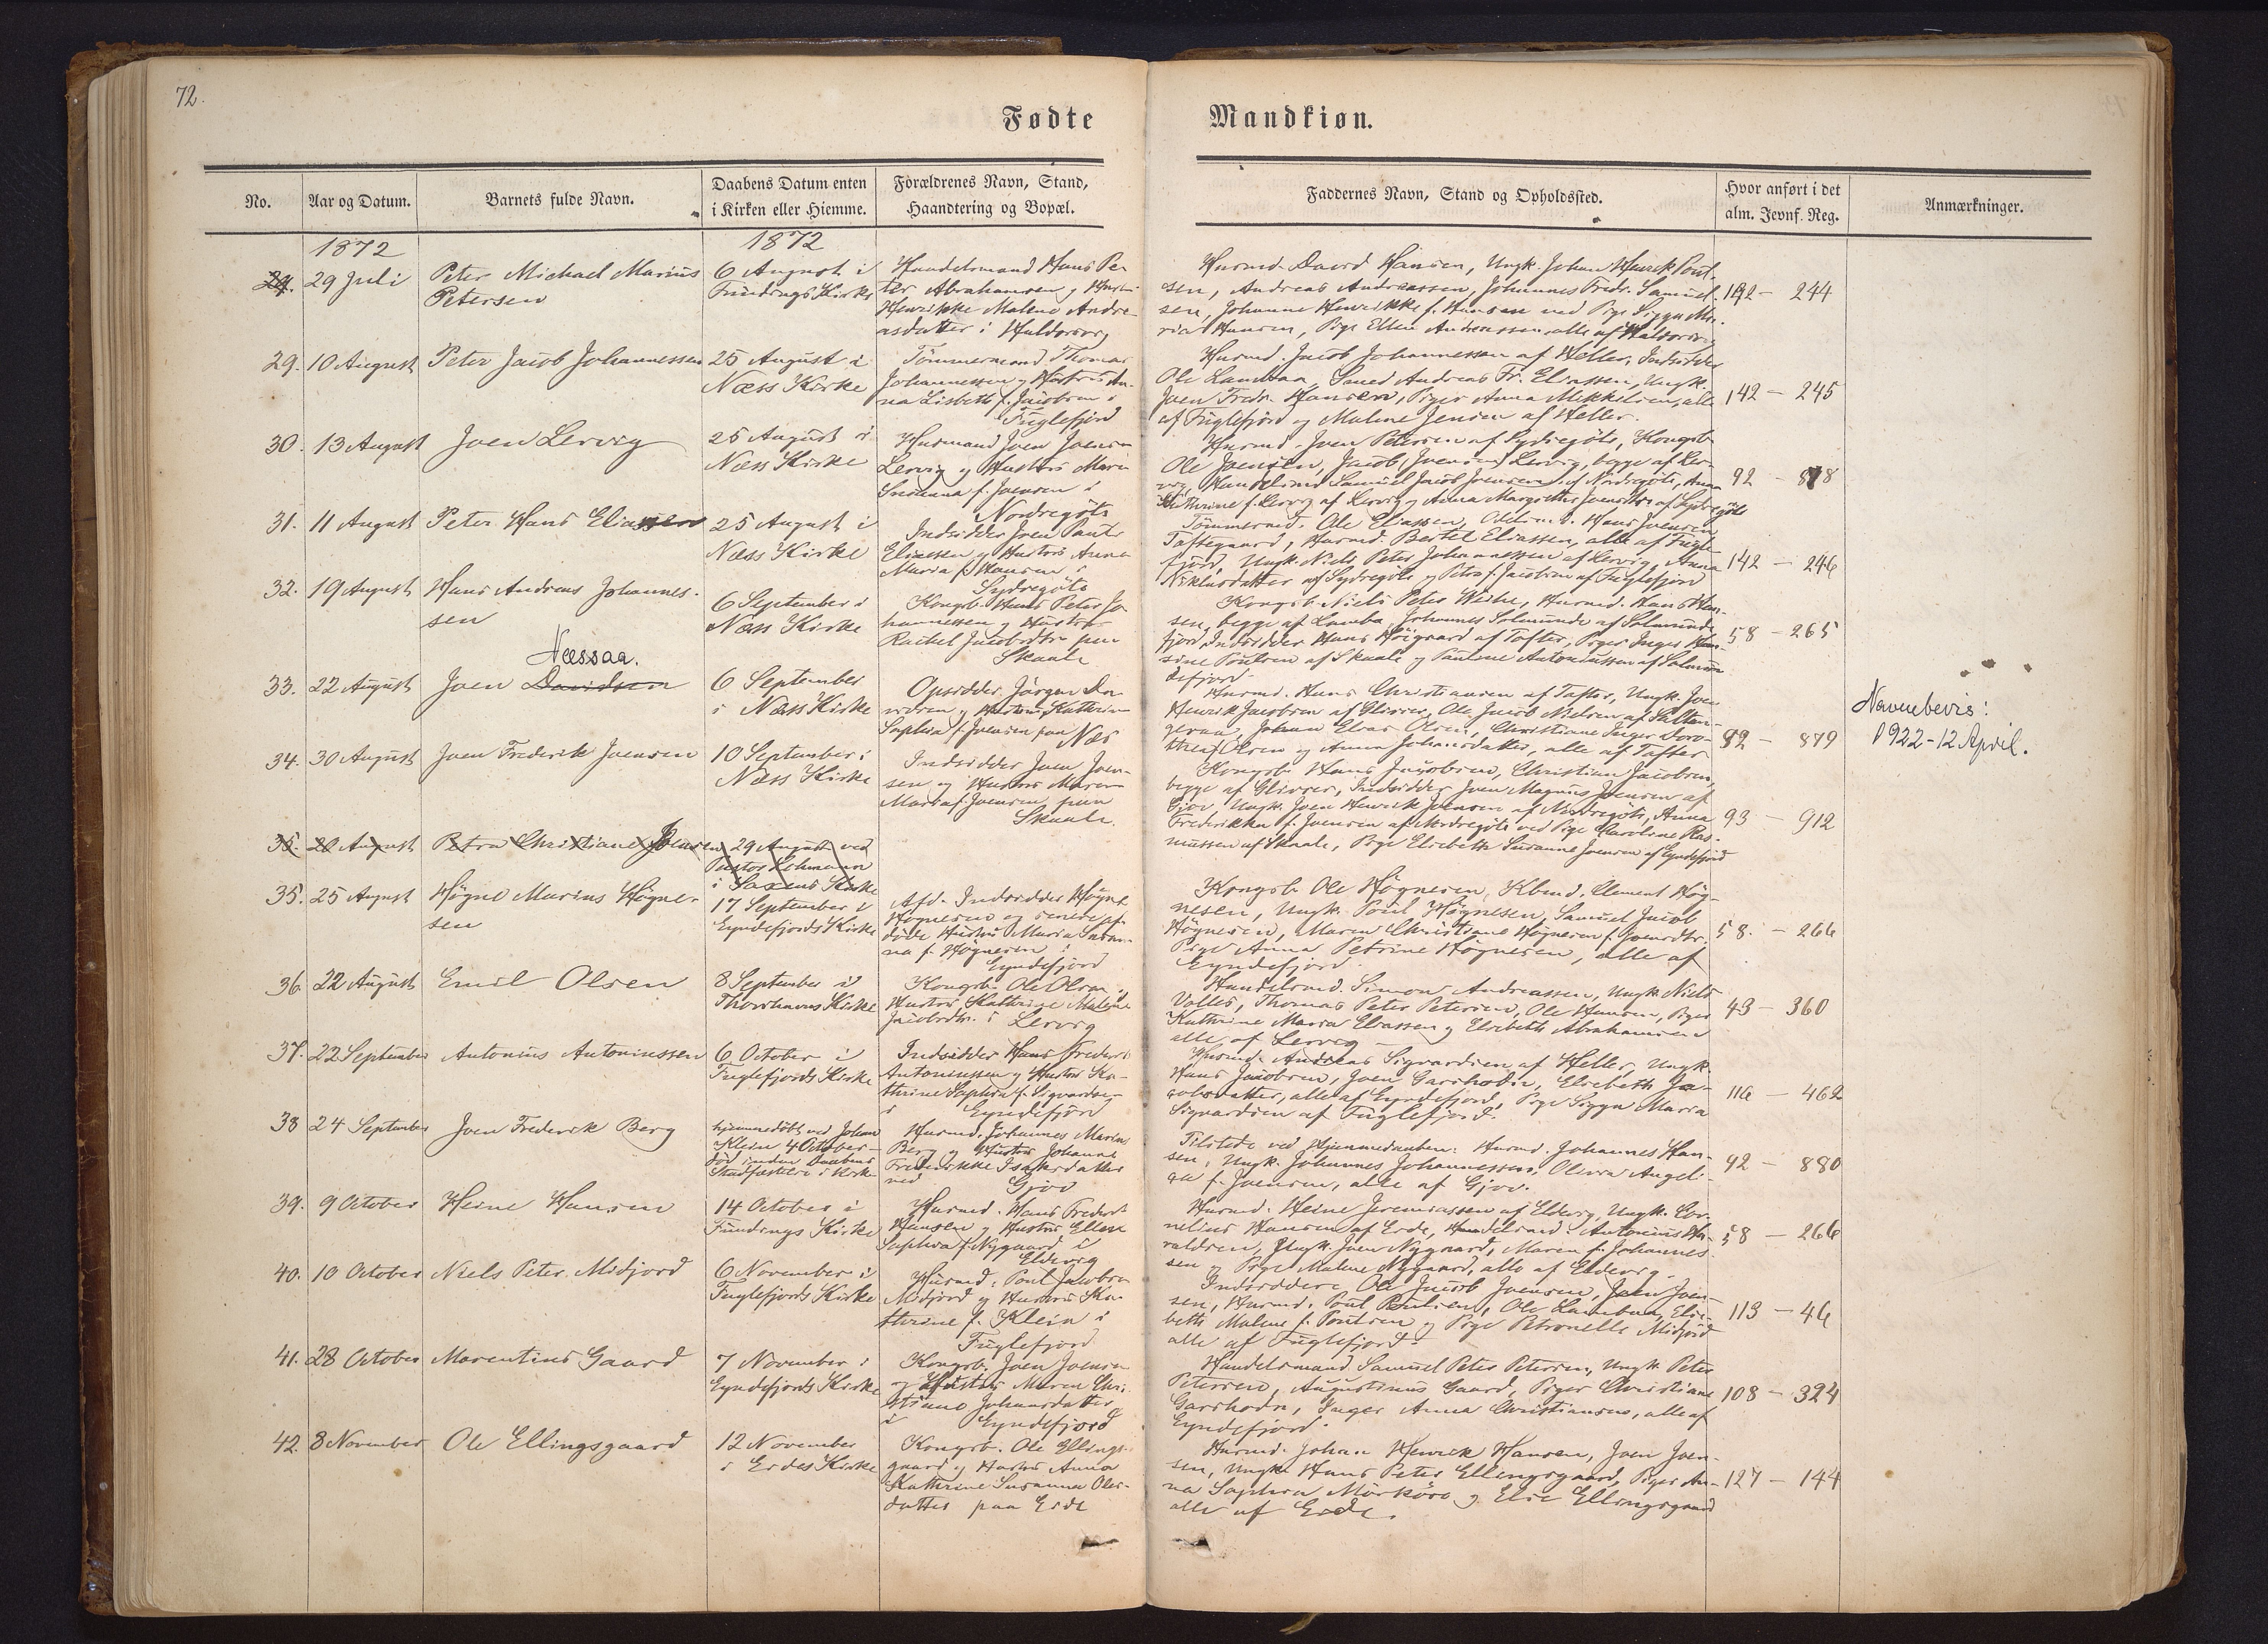 72.
Fødte
Mandkiøn.
No.
Aar og Datum.
Barnets fulde Navn.
Daabens Datum enten
i Kirken eller Hiemme.
Forældrenes Navn, Stand,
Haandtering og Bopæl.
Faddernes Navn, Stand og Opholdssted.
Hvor anført i det
alm. Jevnf. Reg.
Anmærkninger.
1872
1872
29 Juli
Peter Michael Marius
Petersen
6 August i
Fundings Kirke
Handelsmand Hans Pe-
ter Abrahamsen og Hustru
Henrikke Malene Andre-
asdatter i Haldorsvig
Husmd. David Hansen, Ungk. Johan Henrik Poul-
sen, Andreas Andreassen, Johannes Fredr. Samuel-
sen, Johanne Henrikke f. Hansen ved Pige Sigga Ma-
ria Hansen, Pige Ellen Andreassen, alle af Haldorsvig
142 - 244
29.
10 August
Peter Jacob Johannessen
25 August i
Næss Kirke
Tømmermand Thomas
Johannessen og Hustru An-
na Lisbeth f. Jacobsen i
Fuglefjord
Husmd. Jacob Johannessen af Heller, Indsidder
Ole Lambaa, Smed Andreas Fr. Eliassen, Ungk.
Joen Fredr. Hansen, Piger Anna Mikkelsen, alle
af Fuglefjord og Malene Jensen af Heller.
142 - 245
30.
13 August
Joen Lervig
25 August i
Næss Kirke
Husmand Joen Joensen
Lervig og Hustru Maria
Susanna f. Joensen i
Nordregöte
Husmd. Joen Petersen af Sydregöte, Kongsb.
Ole Joensen, Jacob (Joensen) Lervig, begge af Ler-
vig, Handelsmd. Samuel Jacob Joensen af Nordregöte, Anna
Kathrine f. Lervig af Lervig og Anna Margrethe Joensdtr. af Sydregöte
92 - 878
31.
11 August
Peter Hans Eliassen
25 August i
Næss Kirke
Indsidder Joen Paul
Eliassen og Hustru Anna
Maria f. Hansen i
Sydregöte
Tømmermd. Ole Eliassen, Odelsmd. Hans Joensen
Toftegaard, Husmd. Bertel Eliassen, alle af Fugle-
fjord, Ungk. Niels Peter Johannessen af Lervig, Anna
Niklasdatter af Sydregöte og Petra f. Jacobsen af Fuglefjord
142 - 246
32.
19 August
Hans Andreas Johannes-
sen
6 September i
Næss Kirke
Kongsb. Hans Peter Jo-
hannessen og Hustru
Rachel Jacobsdtr. paa
Skaale
Kongsb. Niels Peter Weihe, Husmd. Hans Han-
sen, begge af Lamba, Johannes Solmunde af Solmunde-
fjord, Indsidder Hans Höigaard af Tofter, Piger Inger Han-
sine Poulsen af Skaale og Pauline Antoniussen af Solmun-
defjord
58 - 265
Næssaa.
33.
22 August
Joen Davidsen
6 September
i Næss Kirke
Opsidder Jörgen Da-
vidsen og Hustru Kathrine
Sophia f. Joensen paa Næs
Husmd. Hans Christiansen af Tofter, Ungk. Joen
Henrik Jacobsen af Glivrer, Ole Jacob Nielsen af Salten-
geraa, Johan Elias Olsen, Christiane Inger Doro-
thea Olsen og Anna Johansdatter, alle af Tofter
92 - 879
Navnebevis:
1922-12 April.
34.
30 August
Joen Frederik Joensen
10 September i
Næss Kirke
Indsidder Joen Joen-
sen og Hustru Maren
Maria f. Joensen paa
Skaale.
Kongsb. Hans Jacobsen, Christian Jacobsen,
begge af Glivrer, Indsidder Joen Magnus Joensen af
Gjov, Ungk. Joen Henrik Joensen af Nordregöte, Anna
Frederikka f. Joensen af Nordregöte ved Pige Caroline Ras-
mussen af Skaale, Pige Elsebeth Susanne Joensen af Eyndefjord
93 - 912
35.
20 August
Petra Christiane Joensen
29 August ved
Pastor Lehmann
i Saxens Kirke
35.
25 August
Högne Marius Högne-
sen
17 September i
Eyndefjords Kirke
Afd. Indsidder Högne
Högnesen og senere af-
döde Hustru Maria Susan-
na f. Högnesen i
Eyndefjord
Kongsb. Ole Högnesen, Kbmd. Clement Hög-
nesen, Ungk. Poul Högnesen, Samuel Jacob
Högnesen, Maren Christiane Högnesen f. Joensdtr.
Pige Anna Petrine Högnesen, alle af
Eyndefjord
58. - 266
36.
22 August
Emil Olsen
8 September i
Thorshavns Kirke
Kongsb. Ole Olsen og
Hustru Kathrine Malene
Jacobsdtr. i Lervig
Handelsmd. Simon Andreassen, Ungk. Niels
Valles, Thomas Peter Petersen, Ole Hansen, Piger
Kathrine Maria Eliassen og Elsebeth Abrahamsen
alle af Lervig
43 - 360
37.
22 September
Antonius Antoniussen
6 October i
Fuglefjords Kirke
Indsidder Hans Frederik
Antoniussen og Hustru Ka-
thrine Sophia f. Sigvardsen
i Eyndefjord
Husmd. Andreas Sigvardsen af Heller, Ungk.
Hans Jacobsen, Joen Garshodn, Elsebeth Ja-
cobsdatter, alle af Eyndefjord, Pige Sigga Maria
Sigvardsen af Fuglefjord.
116 - 462
38
24 September
Joen Frederik Berg
hjemmedöbt ved Johan
Klein 4 October -
död inden Daabens
Stadfæstelse i Kirken
Husmd. Johannes Marius
Berg og Hustru Johanne
Frederikke Isaksdatter
ved Gjov
Tilstede ved Hjemmedaaben: Husmd. Johannes Han-
sen, Ungk. Johannes Johannessen, Olevia Angeli-
ca f. Joensen, alle af Gjov.
92 - 880
39.
9 October
Heine Hansen
14 October i
Fundings Kirke
Husmd. Hans Frederik
Hansen og Hustru Ellen
Sophia f. Nygaard i
Eldevig
Husmd. Heine Jeremiassen af Eldevig, Ungk. Cor-
nelius Hansen af Eide, Handelsmd. Antonius Ha-
raldsen, Ungk. Joen Nygaard, Maren f. Johannes-
sen og Pige Malene Nygaard, alle af Eldevig
58 - 266
40.
10 October
Niels Peter Midjord
6 November i
Fuglefjords Kirke
Husmd. Poul Jacobsen
Midjord og Hustru Ka-
thrine f. Klein i
Fuglefjord
Indsiddere Ole Jacob Joensen, Joen Joen-
sen, Husmd. Poul Poulsen, Ole Lambaa, Else-
beth Malene f. Poulsen og Pige Petronelle Midjord
alle af Fuglefjord.
113 - 46
41.
28 October
Marentius Gaard
7 November i
Eyndefjords Kirke
Kongsb. Joen Joensen
og Hustru Maren Chri-
stiane Johansdatter
i Eyndefjord
Handelsmand Samuel Peter Petersen, Ungk. Peter
Petersen, Augustinus Gaard, Piger Christiane
Garshodn, Inger Anna Christiansen, alle af
Eyndefjord.
108 - 324
42.
8 November
Ole Ellingsgaard
12 November
i Eides Kirke
Kongsb. Ole Ellings-
gaard og Hustru Anna
Kathrine Susanna Oles-
datter paa Eide
Husmd. Johan Henrik Hansen, Joen Joen-
sen, Ungk. Hans Peter Ellingsgaard, Piger An-
na Sophia Mörköre og Elsa Ellingsgaard
alle af Eide.
127 - 144